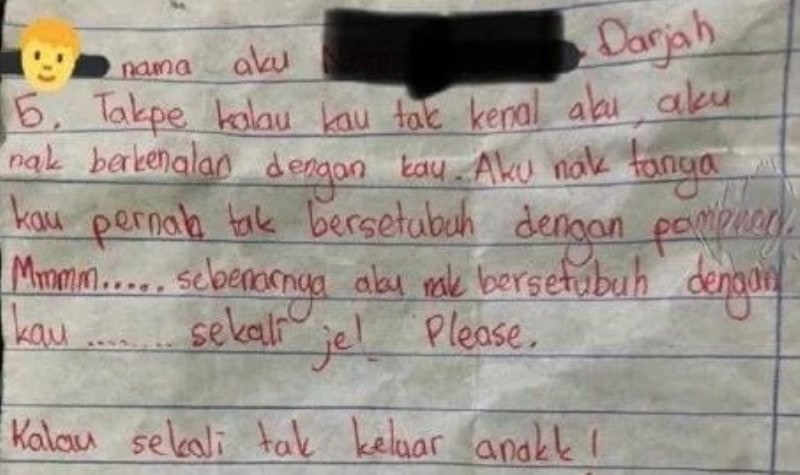 nama aku Darjah
5. Takpe kalau kau tak kenal aku, aku
nak berkenalan dengan kau. Aku nak tanya
kau pernah tak bersetubuh dengan
Mmmm..... sebenarnya aku nak bersetubuh dengan
kau ........ sekali je! Please.
Kalau sekali tak keluar anakk!